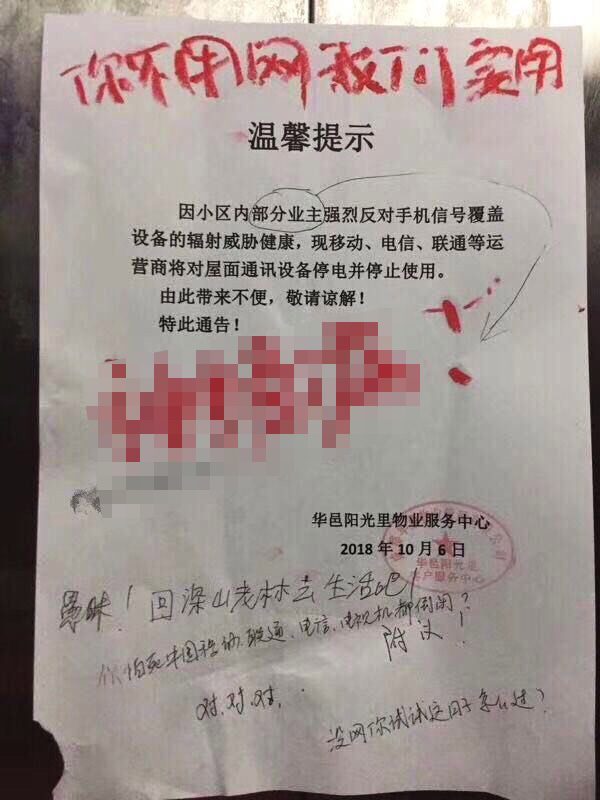 你不用网我们要用
温馨提示
因小区内部分业主强烈反对手机信号覆盖
设备的辐射威胁健康，现移动、电信、联通等运
营商将对屋面通讯设备停电并停止使用。
由此带来不便，敬请谅解！
特此通告！
华邑阳光里物业服务中心
2018年10月6日
华邑阳光里
客户服务中心
愚昧！回深山老林去生活吧！
你怕死中国移动、联通、电信、电视机都倒闭？
附议！
对.对.对.
没网你试试这日子怎么过？